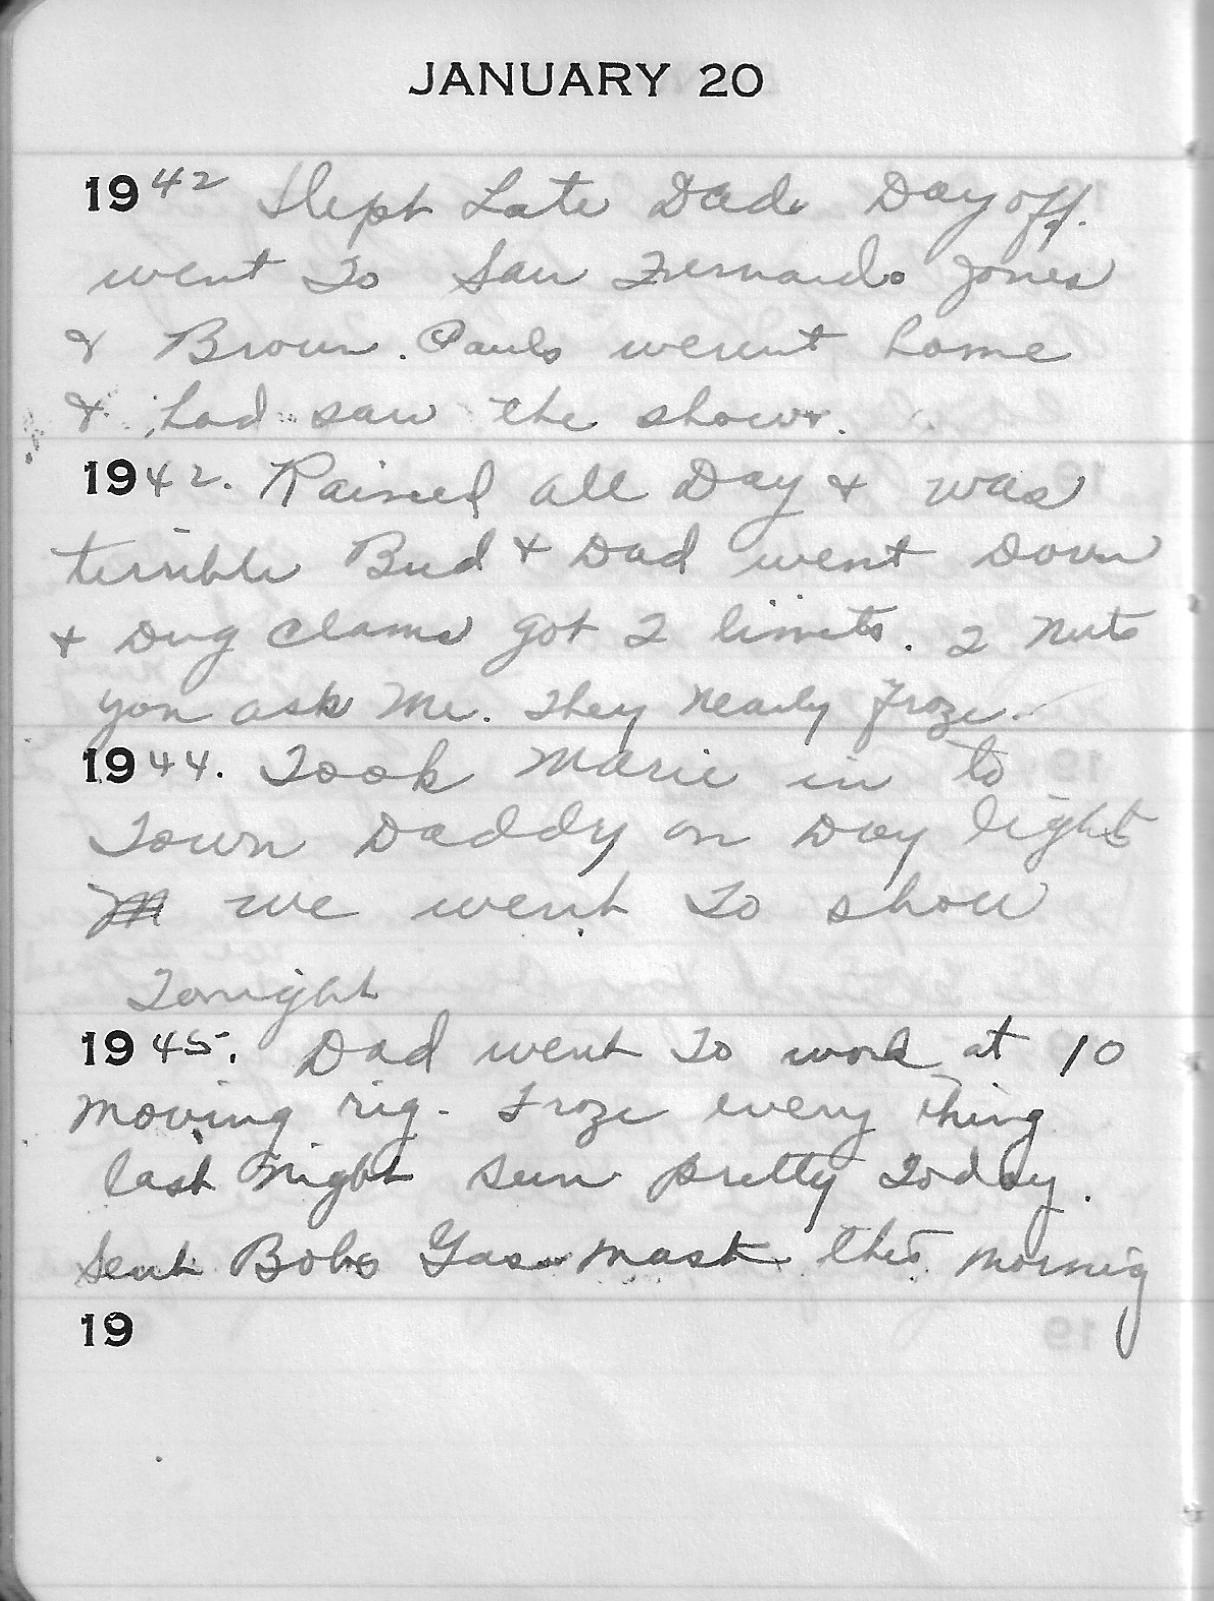 JANUARY 20
1942 Slept Late Dads Day off.
went To San Fernando Jones
& Brown. Pauls werent home
& had saw the show.
1942. Rained all Day & was
terrible Bud & Dad went Down
& Dug clams got 2 limits. 2 Nuts
you ask Me. They nearly froze.
1944. Took Marie in to
Town Daddy on Day light
M we went To show
Tonight
1945. Dad went To work at 10
moving rig. Froze every thing
last night sun pretty Today.
Sent Bobs Gas mask this mornig
19